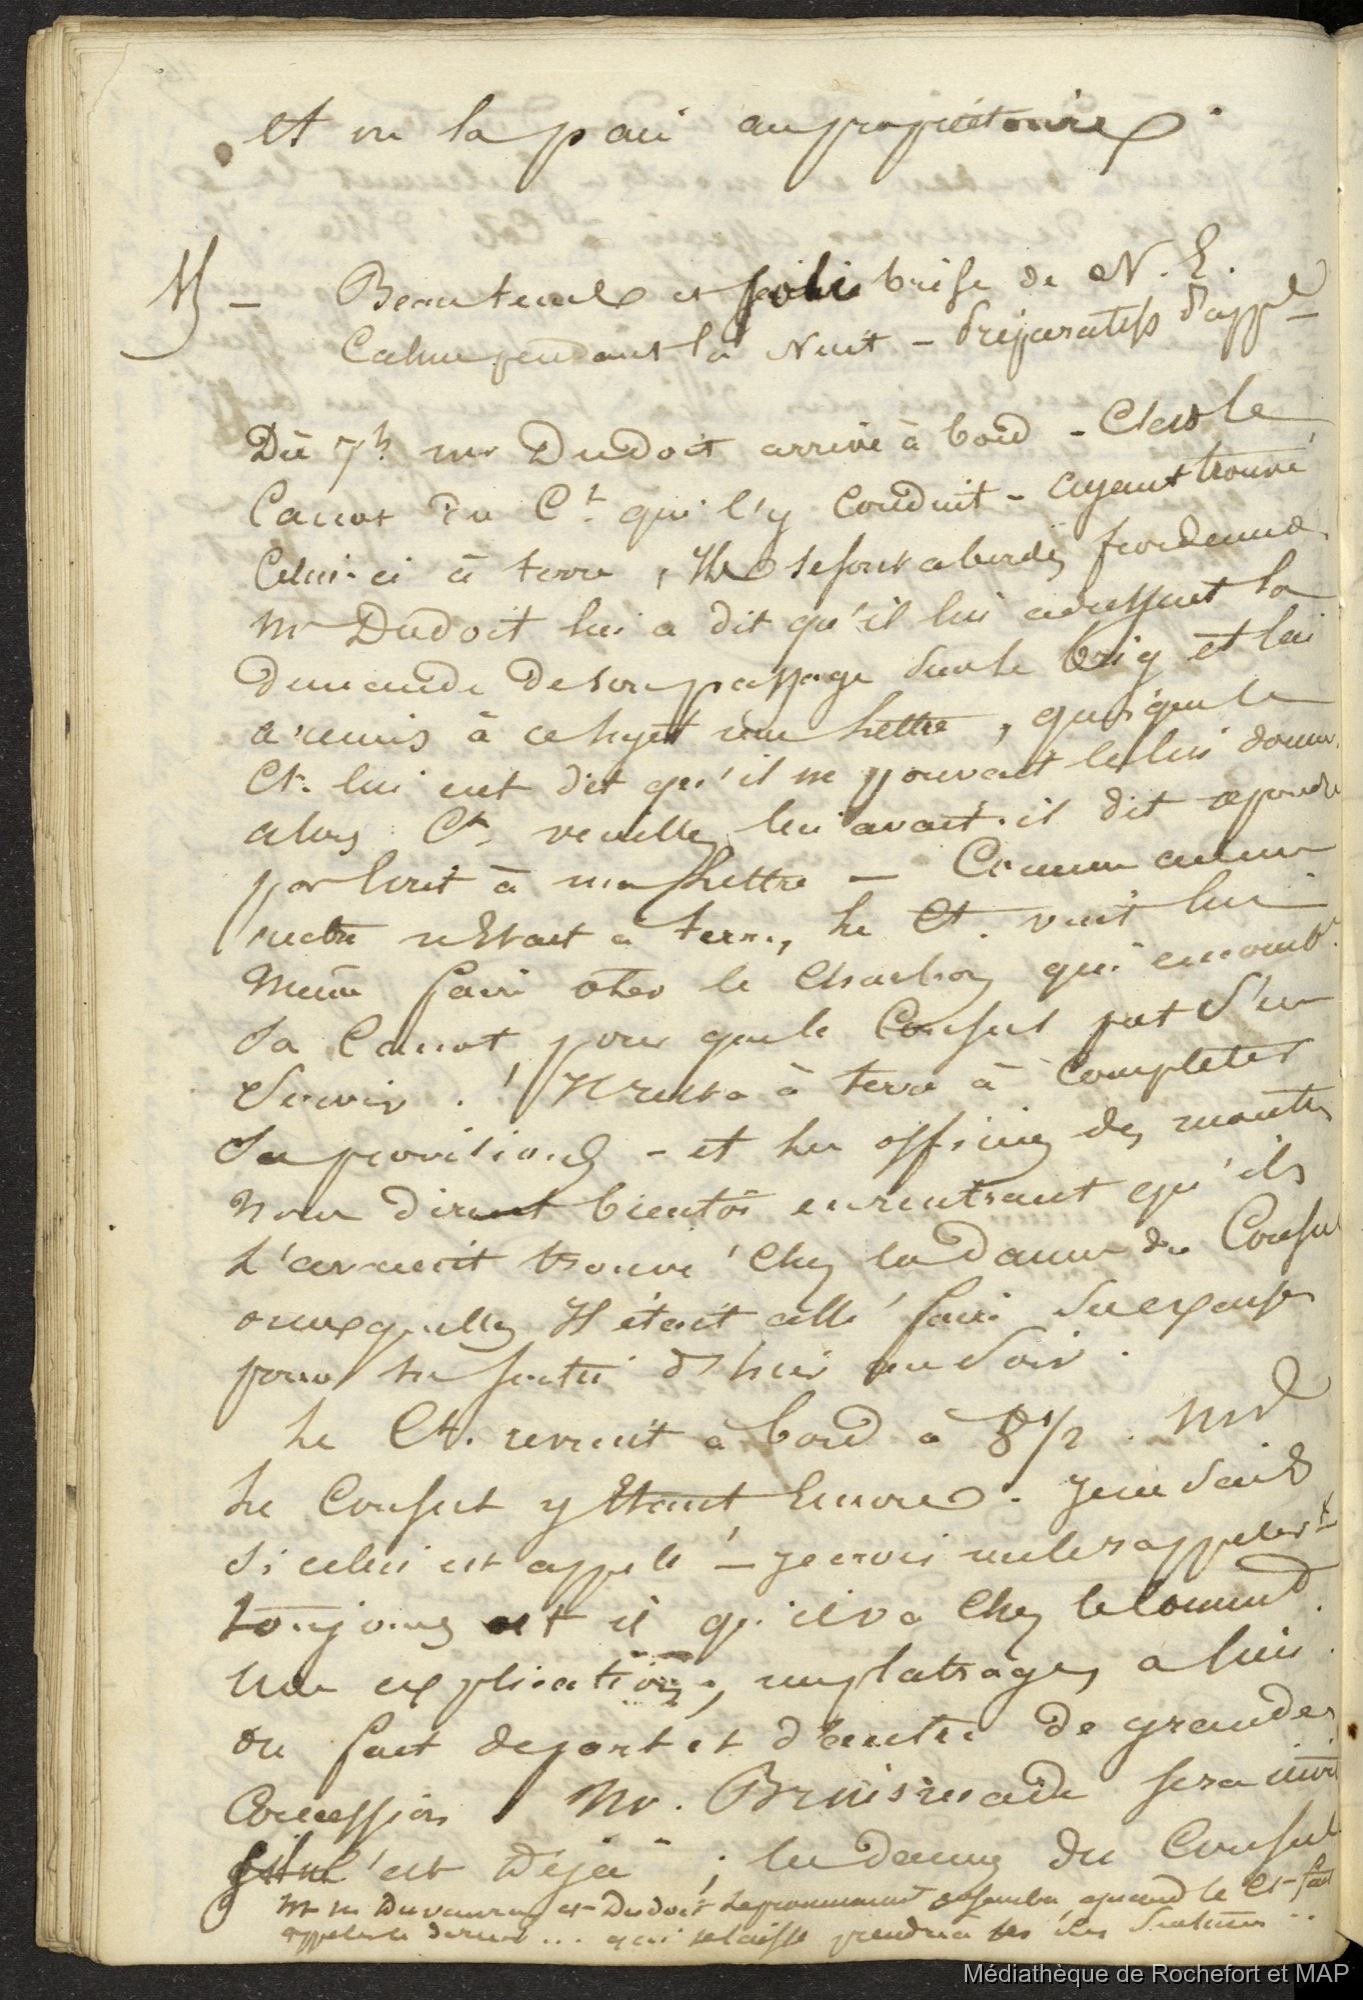 et on la paie au propriétaire
15 – Beau temps et jolie brise de N. E.
Calme pendant la nuit – Préparatifs d'appar
Dès 7h mr Dudoit arrive à bord – C'est le
Canot du Ct qui l'y conduit – ayant trouvé
Celui-ci à terre, Ils se sont abordés froidement
Mr Dudoit lui a dit qu'il lui adressait la
demande de son passage sur le brig et lui
a remis à ce sujet une lettre, quoique le
Ct. lui eut dit qu'il ne pouvait le lui donner
alors Ct, veuillez lui avait-il dit répondre
par écrit à ma lettre – Comme aucun
autre restait à terre, le Ct. vint lui
même faire oter le charbon qui encomb
sa Canot, pour que le Consul put s'en
servir. ! Il resta à terre à completer
ses provisions – et les officiers des montres
nous dirent bientôt en rentrant qu'ils
l'avaient trouvé chez la dame du Consul
auxquelles Il était allé faire ses excuses
pour sa sortie d'hier au soir.
Le Ct. revint à bord à 8 1/2. Mr
le Consul y étant encore. Je ne sais
si celui est appelé – je crois me le rappeler
toujours est il qu'il va chez le Comm
Une explication, replatrages a lieu
On fait de part et d'autre de grandes
Concession Mr. Brinsmade sera invi
s'il ne l'est déjà ; les dames du Consul
Mr Duvauroux et Dudoit se promenaient ensemble, quand le Ct fait
appeler le dernier ... qui se laisse prendre à ses
Médiathèque de Rochefort et MAP